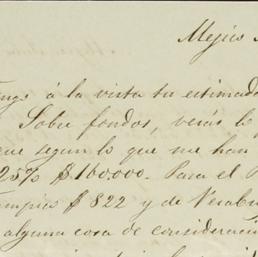 Mejico
Tengo á la vista tu estimada
Sobre fondos, verás lo
que segun lo que me han
25% $160.000. Para el
Tampico $822 y de Verabruz
alguna cosa de consideracion